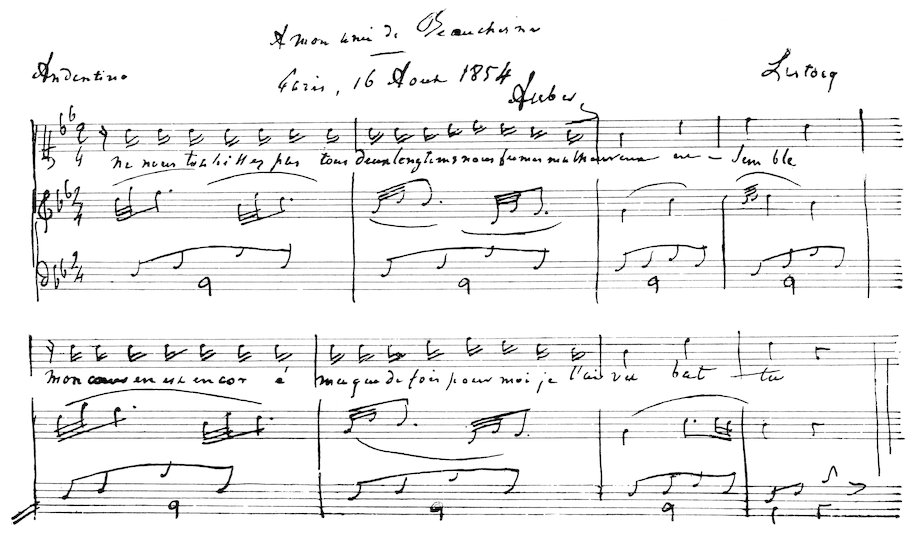 A mon ami de Beauchesne
Andantino
Paris, 16 Aout 1854
Lestocq
Auber
ne nous trahissez pas tous deux longtems nous fumes malheureux en - semble
mon coeur en est encor é
mu que de fois pour moi je l'ai vu bat - tu